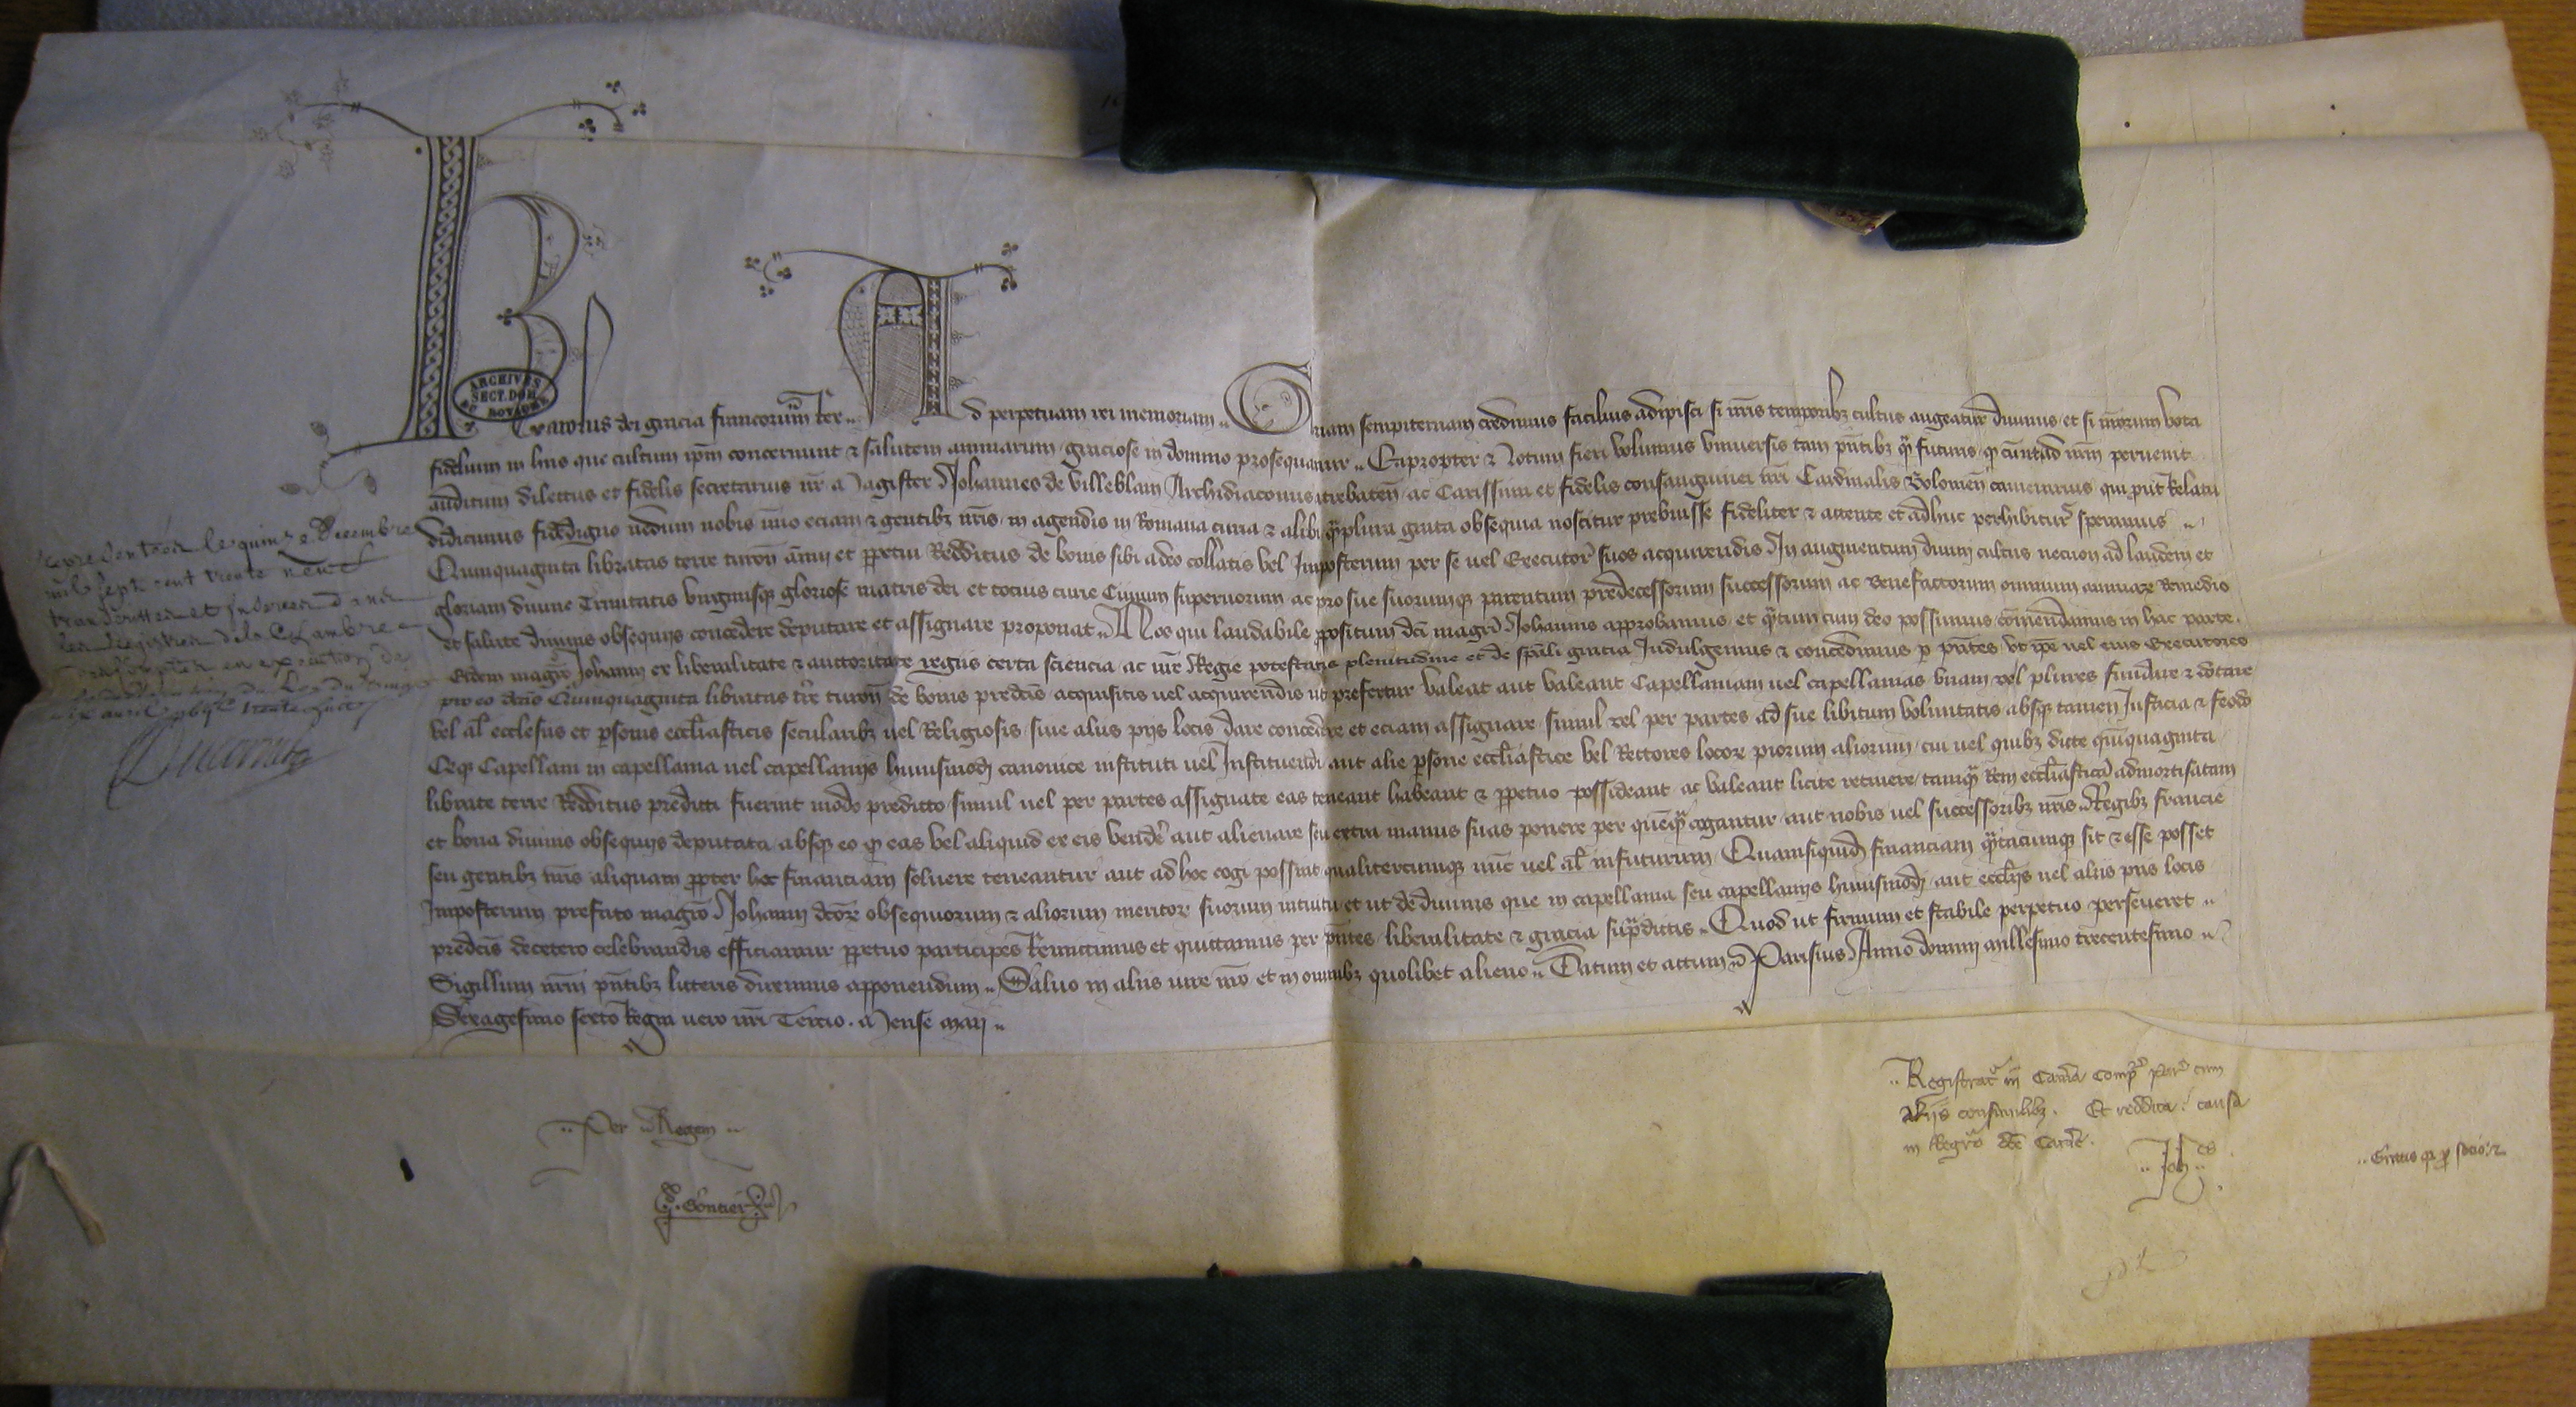 Karolus dei gracia francorum Rex Ad perpetuam rei memoriam Gloriam sempiternam credimus facilius adipisci si nris temporibz cultus augeatur divinus et si nrorum vota
fidelium in hiis que cultum ipm concernunt & salutem animarum graciose in domino prosequamur Eapropter & Notum fieri volumus universis tam pntibz q futuris q cum ad nrm pervenit
auditum dilectus et fidelis secretarius nr Magister Johannes de Villeblain Archidiaconus atrebaten ac Carissimi et fidelis consanguinei nri Cardinalis Bolonien camerarius qui put Relatu
didicimus fidedigno nedum nobis imo eciam & gentibz nris in agendis in Romana curia & alibi qplura grata obsequia noscitur prebuisse fideliter & attente et adhuc perhibitur speramus
Quinquaginta libratas terre turon annui et ppetui Redditus de bonis sibi a deo collatis vel Imposterum per se vel Executor suos acquirendis In augmentum divini cultus necnon ad laudem et
gloriam divine Trinitatis virginisq gloriose matris dei et tocius curie Civium supernorum ac pro sue suorumq parentum predecessorum successorum ac Benefactorum omnium animarz Remedio
et salute divinis obsequiis concedere deputare et assignare proponat Nos qui laudabile ppositum dci magri Johannis approbamus et qtum cum deo possumus comendamus in hac parte
Eidem magro Johanni ex liberalitate & auctoritate regiis certa sciencia ac nre Regie potestatis plenitudine et de spali gracia Indulgemus & concedimus p pntes ut ipe vel eius Executores
pro eo dictas Quinquaginta libratas tre turon de bonis predcis acquisitis vel acquirendis ut prefertur valeat aut valeant Capellaniam vel capellanias unam vel plures fundare & dotare
vel al ecclesiis et psonis ecclasticis secularibz vel Religiosis sive aliis piis locis dare concedere et eciam assignare simul vel per partes ad sue libitum voluntatis absq tamen Justicia & feodo
Ceq Capellani in capellania vel capellaniis huiusmodi canonice instituti vel Instituendi aut alie psone ecclastice vel Rectores locorz piorum aliorum cui vel quibz dicte quinquaginta
librate terre Redditus predicti fuerint modo predicto simul vel per partes assignate eas teneant habeant & ppetuo possideant ac valeant licite retinere tamq Rem ecclasticam admortisatam
et bona divinis obsequiis deputata absq eo q eas vel aliquid ex eis vendere aut alienare seu extra manus suas ponere per quemq cogantur aut nobis vel successoribz nris Regibz francie
seu gentibz nris aliquam ppter hoc financiam solvere teneantur aut ad hoc cogi possint qualitercumq nunc vel al infuturum Quamsiquid financiam qtacumq sit & esse posset
Imposterum prefato magro Johanni dcorz obsequiorum & aliorum meritorz suorum intuitu et ut de divinis que in capellania seu capellaniis huiusmodi aut ecclis vel aliis piis locis
predcis decetero celebrandis efficiamur ppetuo participes Remittimus et quittamus per pntes liberalitate & gracia supdictis Quod ut firmum et stabile perpetuo perseveret
Sigillum nrm pntibz litteris duximus apponendum Salvo in aliis iure nro et in omnibz quolibet alieno Datum et actum Parisius Anno domini millesimo trecentesimo
Sexagesimo sexto Regni vero nri Tercio Mense maii
ARCHIVES
SECT. DOM
DU ROYAUME
Representées le quinze Decembre
mil sept cent trente neuf
Per Regem
Gontier
Registrat in Camera Compot Par cum
aliis consimilibz. Et reddita causa
in Regro dce Camere.
Johes